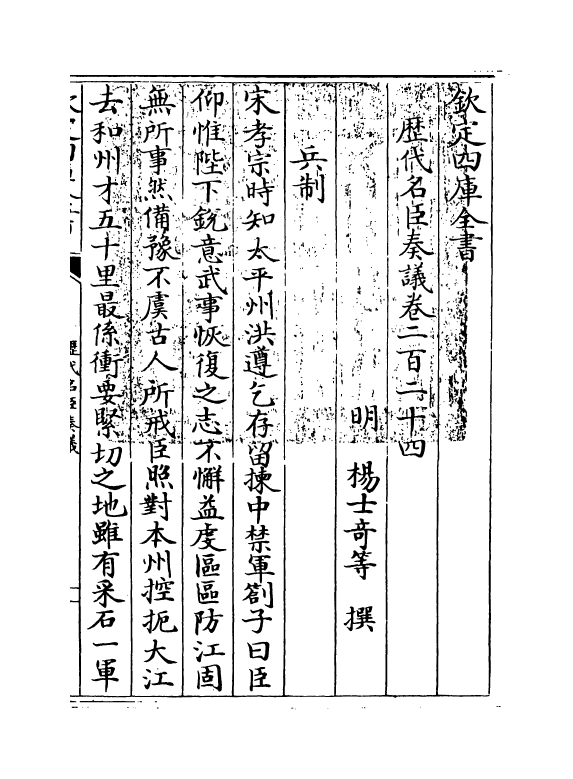 欽定四庫全書
歴代名臣奏議卷二百二十四
明 楊士奇等 撰
兵制
宋孝宗時知太平州洪遵乞存留揀中禁軍劄子曰臣
仰惟陛下銳意武事恢復之志不懈益虔區區防江固
無所事然備豫不虞古人所戒臣照對本州控扼大江
去和州才五十里最係衝要緊切之地雖有采石一軍
歷代名臣奏議